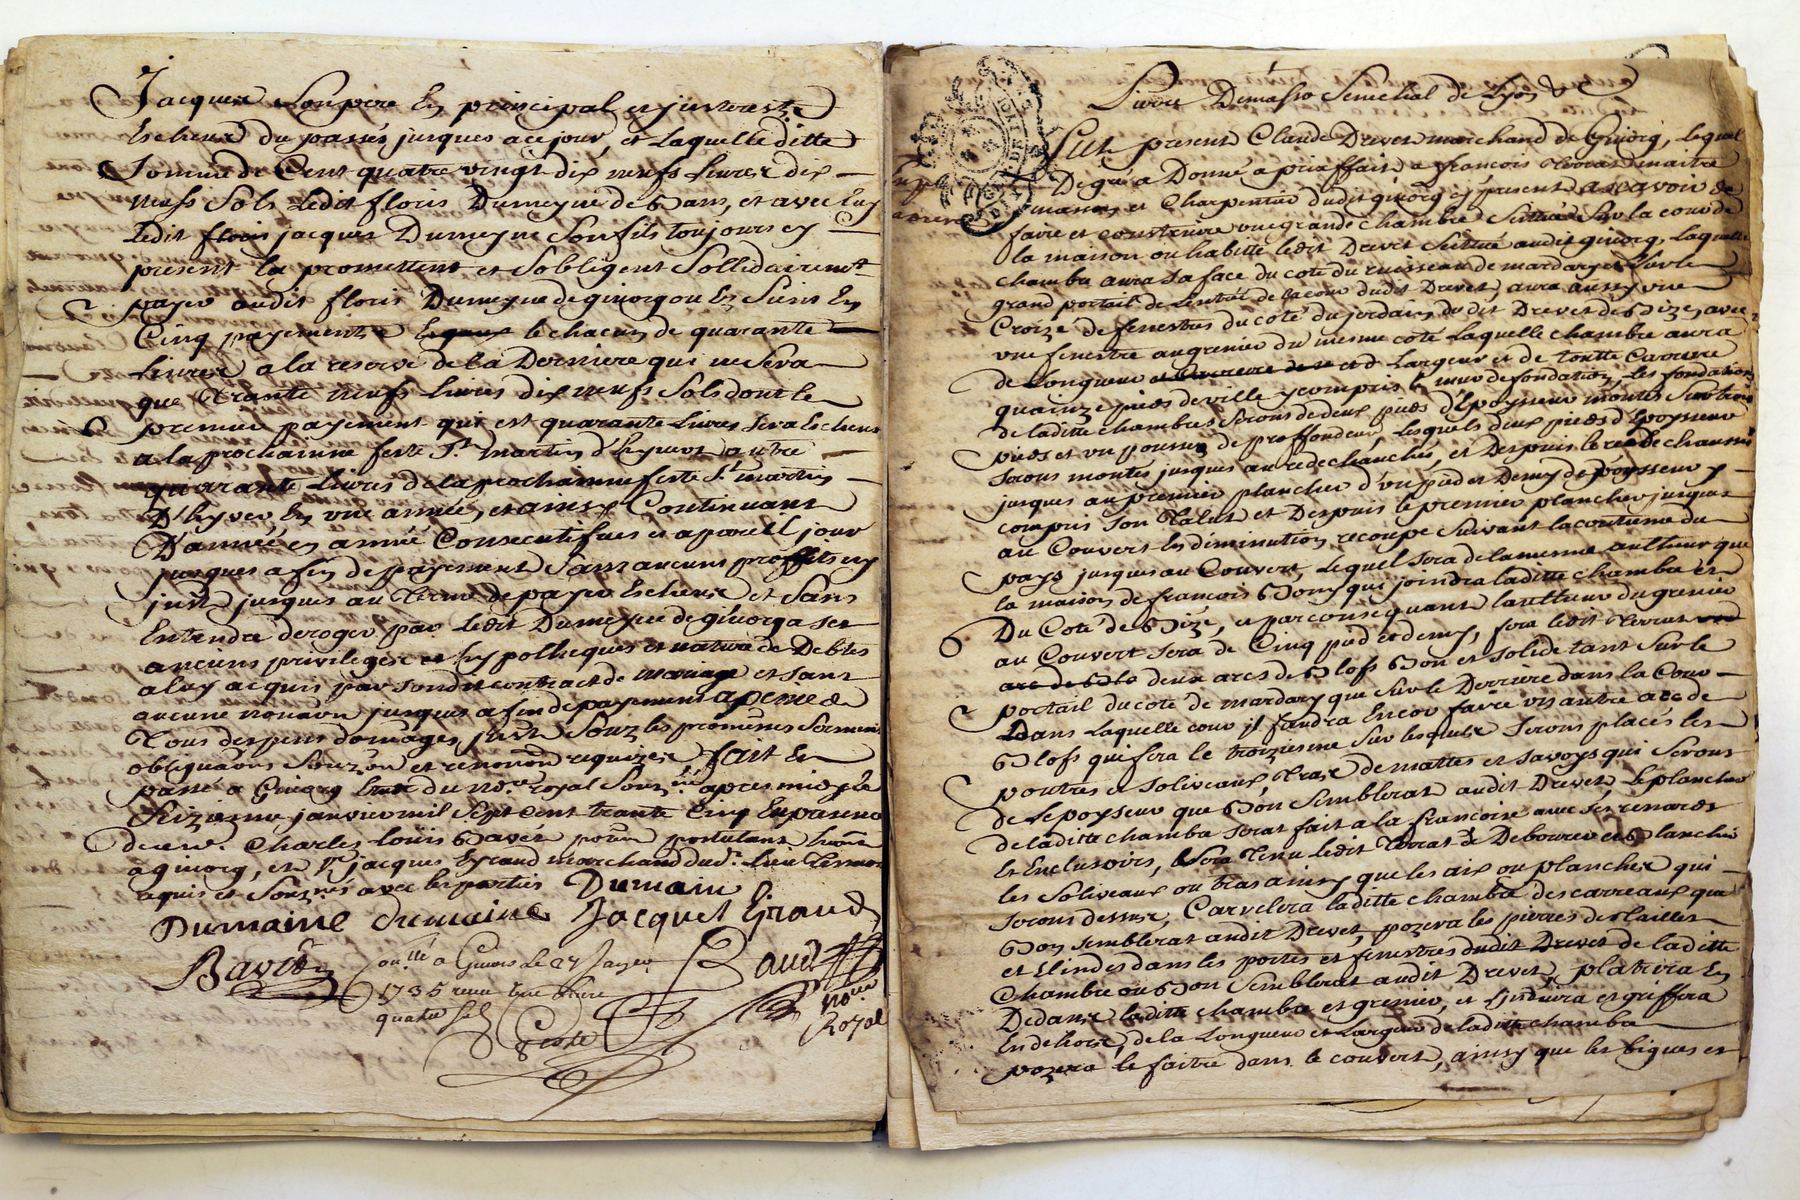 Jacques Son pere En principal et jnterests
Escheus du passés jusques a ce jour, et Laquelle ditte
Somme de Cent quatre vingt dix neufs Livres dix
neufs Sols Ledit floris Dumeyne de Bans, et avec Luy
Ledit floris jacques Dumeyne Son fils toujours cy
present la promettent et Sobligent Sollidairemt
payer audit floris Dumeyne de givorg ou Es Siens En
Cinq payements Egaux le chacun de quarante
Livres a la reserve de la Derniere qui ne Sera
que Trante neufs Livres dix neufs Sols dont le
premier payement qui est quarante Livres Sera Escheus
a la prochainne feste St martin d'hyvert autre
quarante Livres de la prochainne feste St martin
D'hyver En une année, et ainsy Continuant
D'année en année Consecutifves et apareil jour
jusques a fin de payement Sans aucuns proffits ny
jnsts jusques au Terme de payer Escheus et Sans
Entendre deroger par Ledit Dumeyne de givorg a ses
anciens privileges et hypotheques et nature de Debtes
a luy acquis par Sondit contract de mariage et Sans
aucune novaon jusques a fin de payement a peine de
Tous despens domages jnsts Souz les promesses Serments
obligaons Soumon et renonon requizes fait En
passé a Givorg Etude du nore royal Souzné apres midy Le
Seizieme janvier mil Sept Cent trante Cinq En presence
de me. Charles Louis Bavet postulant
a givorg, et Sr jacques Eyraud marchand dud. Lieu Tesmoins
requis et Souznés avec les parties Dumain
Dumaine dumaine Jacques Giraud
Bavet Baud
conllé a Givors Le 27 Janvier
1735 receu une livre
quatre sols
noire
Royal
Pierre Demasso Senechal de Lyon &
Fut present Claude Drevet marchand de Givorg, Lequel
De gré a Donné a prixffait a francois Servat maitre
masson et Charpentier dudit givorg cy present ascavoir de
faire et construire une grande chambre Scittuée Sur la cour de
la maison ou habitte ledit Drevet Scittué audit givorg, Laquelle
chambre aura Sa face du coté du ruisseau de mardary et Sur le
grand portail de Lentrée de la cour dudit Drevet, aura aussy une
Croizé de fenestres du coté du jardain dudit Drevet de Bize, avec
une fenestre au grenier du mesme coté Laquelle chambre aura
de Longueur et Largeur et de toutte Carrure
quainze pieds de ville y compris le mur de fondation, Les fondations
de laditte chambre Seront de deux pieds d'Epoysseur montés Sur trois
pieds et un pouse de proffondeur, Lesquels deux pieds d'Epoysseur
Seront montés jusques au rede chaussé, et Despuis le rede chaussé
jusques au premier plancher d'un pied et Demy de poysseur y
compris Son Talut et Despuis le premier plancher jusques
au Couvert En diminution, recoupe Suivant la coutume du
pays jusques au Couvert, Lequel Sera de la mesme autheur que
la maison de francois Bony qui joindra laditte chambre et
Du Coté de Bize, et par consequant lautheur du grenier
au Couvert Sera de Cinq pied et demy, fera ledit Servat
deux arcs de Blofs Bon et Solide tant Sur le
portail du coté de mardary que Sur le Derriere dans la Cour
Dans Laquelle cour jl faudra Encor faire un autre arc de
Blofs qui fera le troizieme Sur lesquels Seront placés les
poutres et Soliveaux, Tras de mattes et Savoys qui Seront
de Lepoysseur que Bon Semblerat audit Drevet, Le plancher
de laditte chambre Serat fait a la francoise avec Ses renards
et Enclusoirs, Sera Tenu Ledit Servat de Debourer et Blanchir
les Soliveaux ou tras ainsy que les aix ou planches qui
Seront dessus, Carvelera laditte chambre des carreaux que
Bon Semblerat audit Drevet, pozera les pierres de tailles
et Elindes dans les portes et fenestres dudit Drevet de laditte
Chambre ou Bon Semblerat audit Drevet, platrira En
Dedans laditte chambre et grenier, et Enduira et griffera
En dehors, de la Longueur et Largeur de laditte chambre
pozera le faitre dans le couvert, ainsy que les bigues et